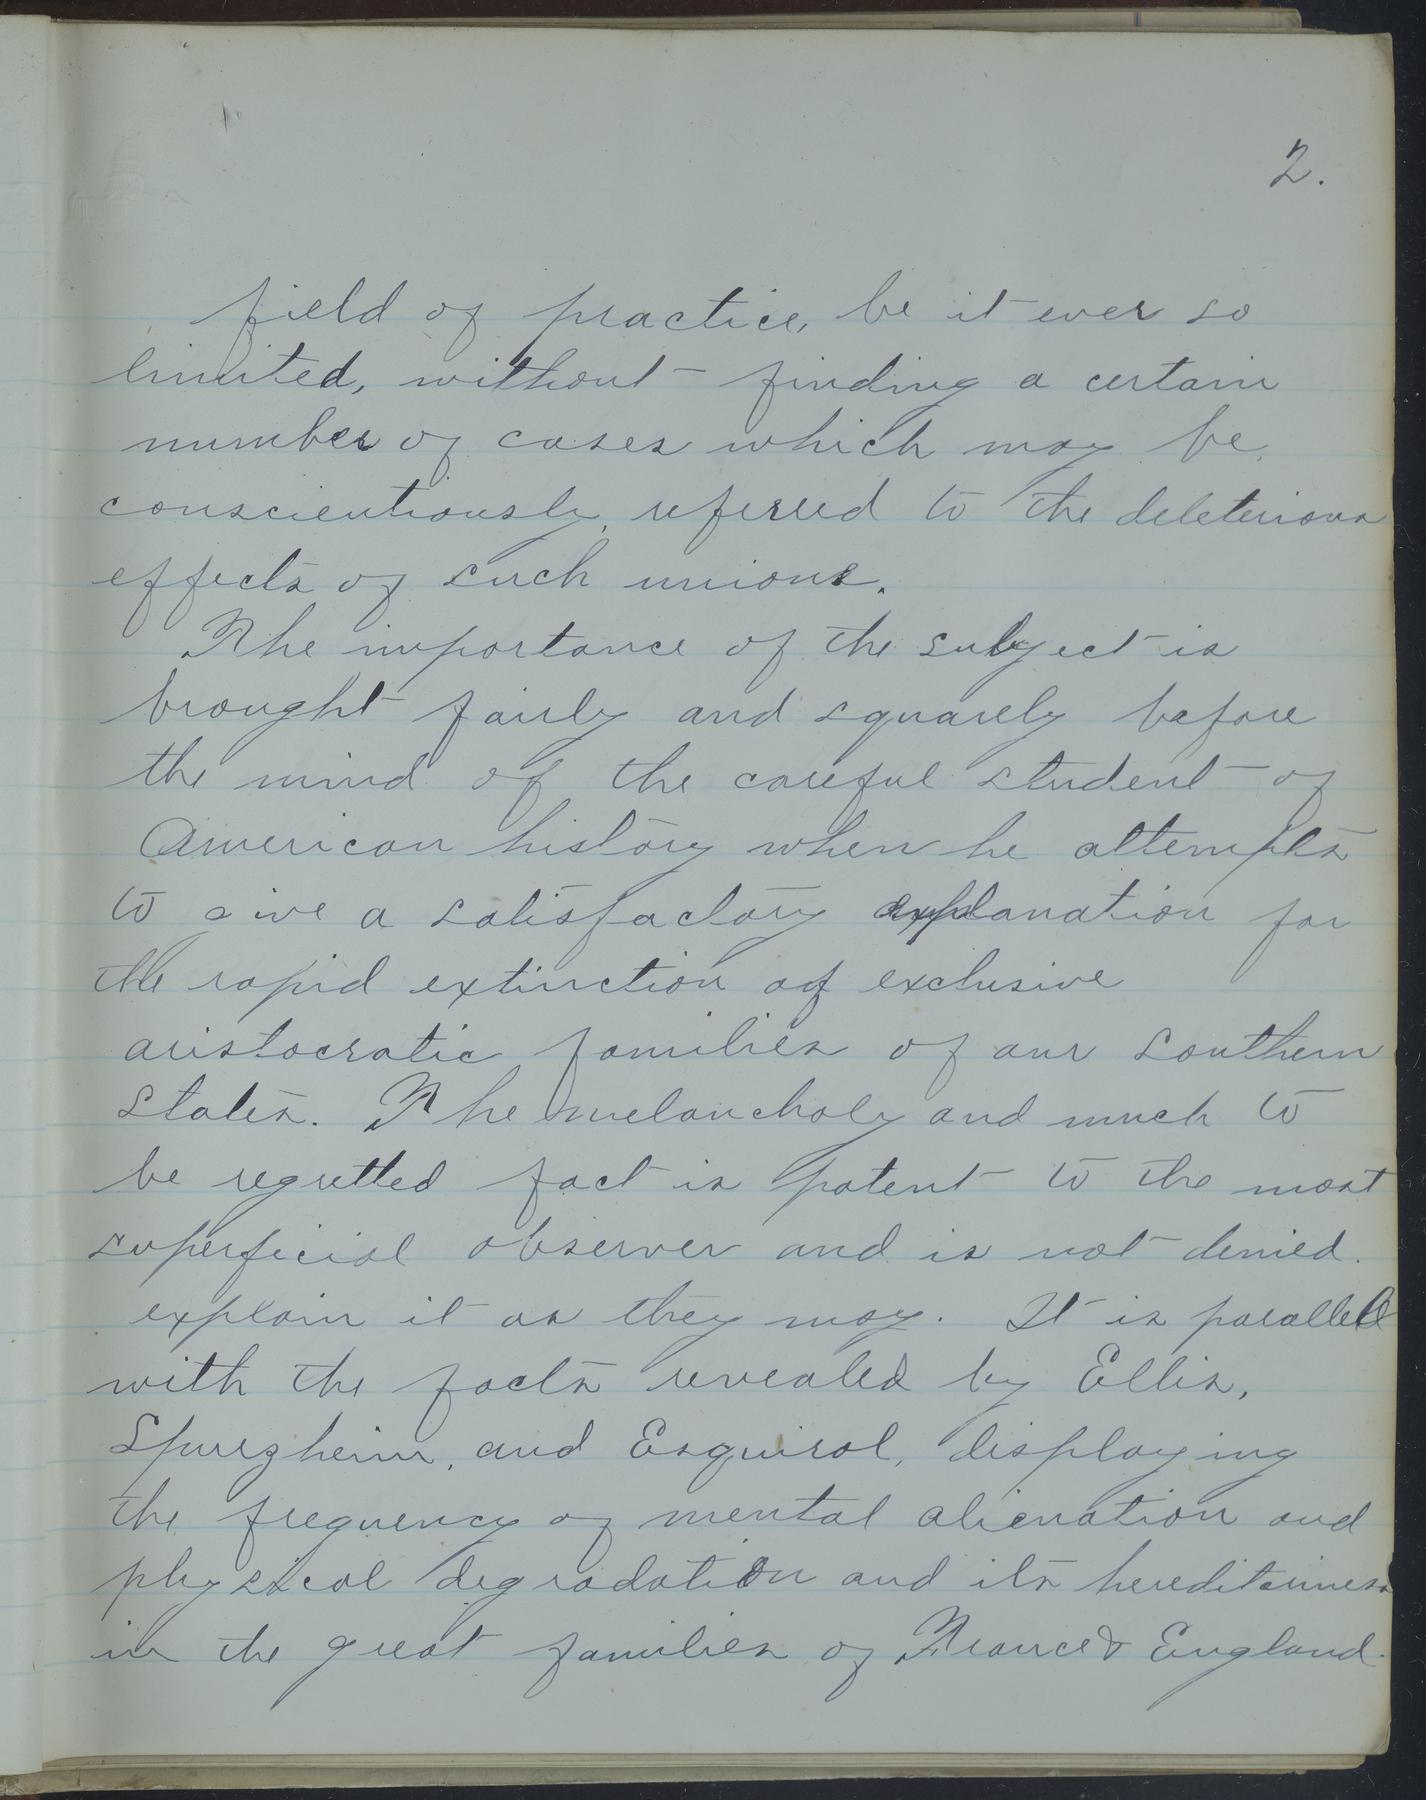 2.
field of practice, be it ever so
limited, without finding a certain
number of cases which may be
conscientiously referred to the deleterious
effects of such unions.
The importance of the subject is
brought fairly and squarely before
the mind of the careful student of
American history when he attempts
to give a satisfactory explanation for
the rapid extinction of exclusive
aristocratic families of our southern
states. The melancholy and much to
be regretted fact is patent to the most
superficial observer and is not denied.
explain it as they may. It is parallel
with the facts revealed by Ellis,
Spurzheim, and Esquirol, displaying
the frequency of mental alienation and
physical degradation and its hereditariness
in the great families of France & England.